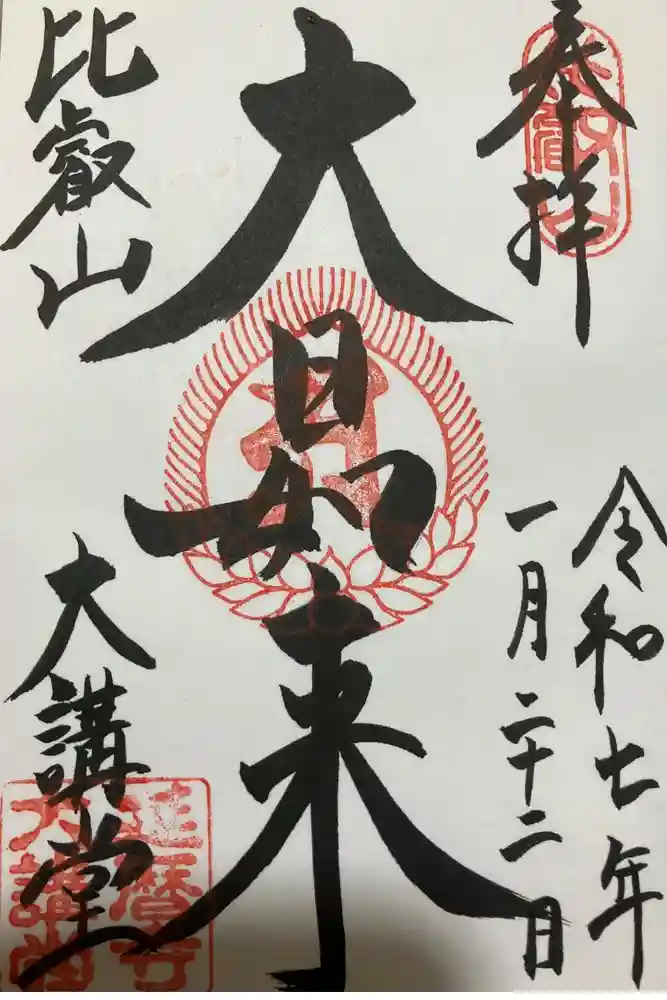 奉拝
令和七年
一月二十二日
大日如来
比叡山
大講堂
比叡山
延暦寺
大講堂